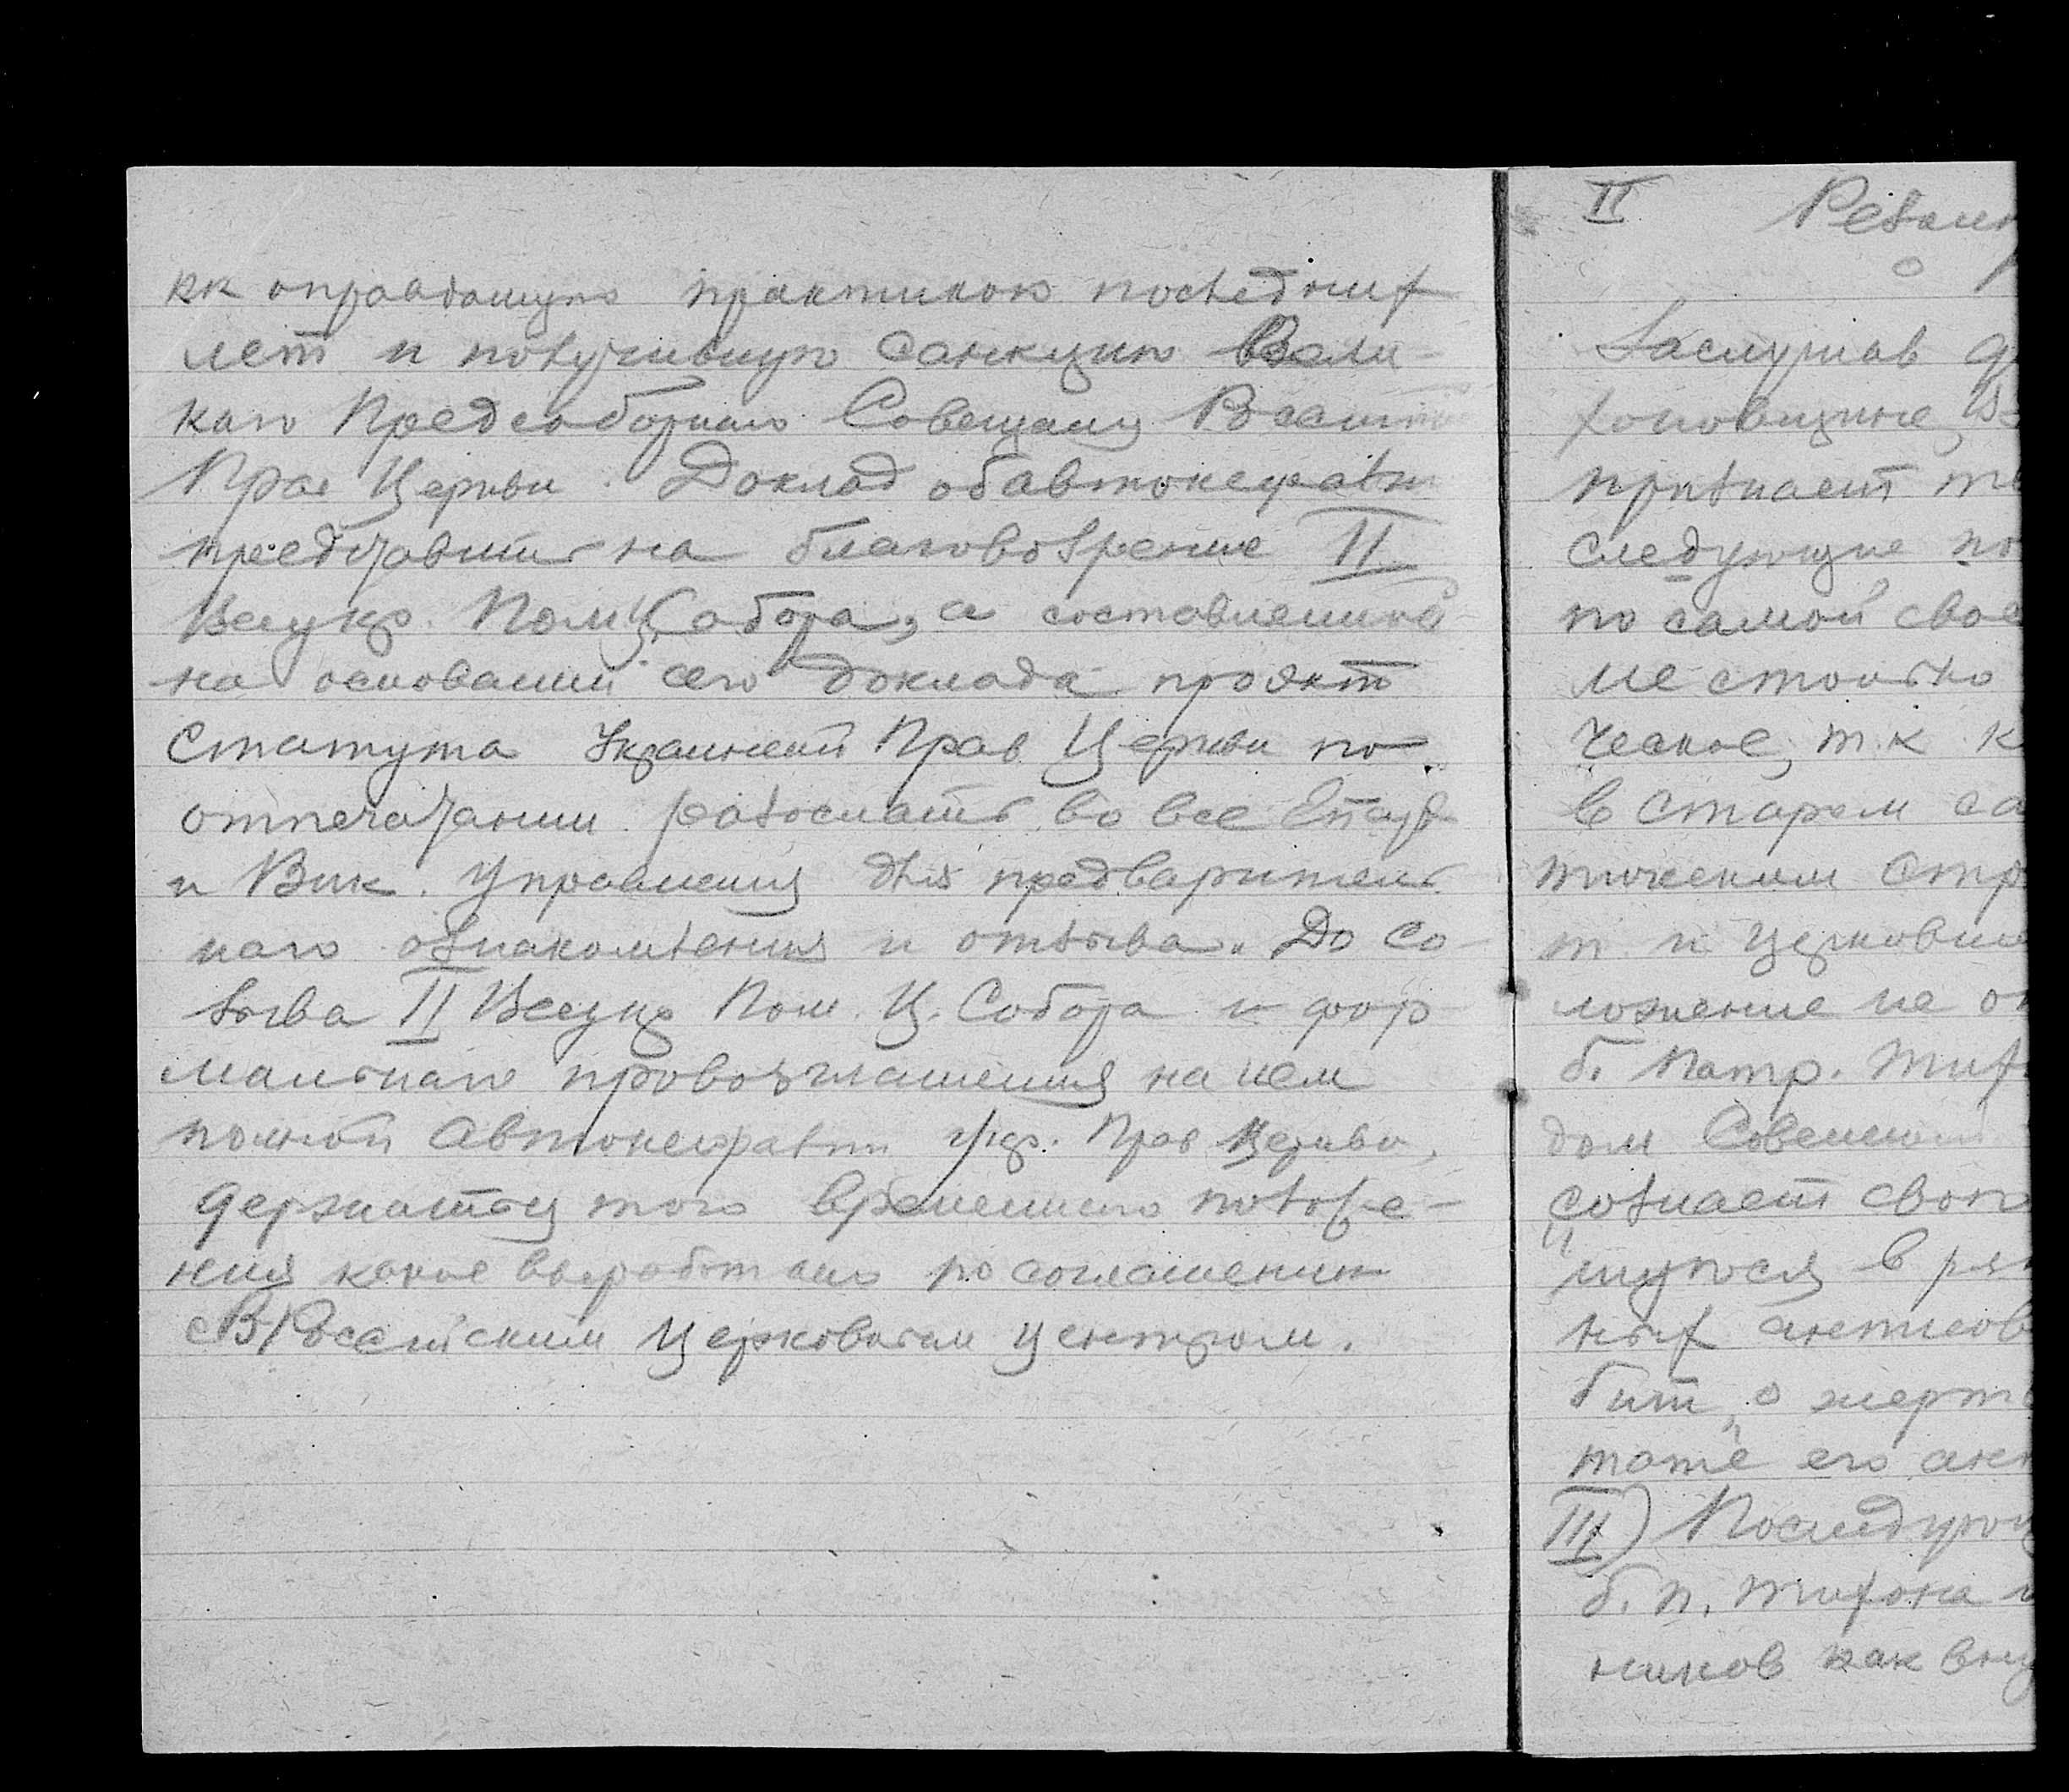 кк оправдавшую практикою последних
лет и получившую санкцию Вели-
каго Предсоборнаго Совещания
Прав Церкви. Доклад об автокефалии
представить на благовоззрение II
Всеукр. Пом Ц Собора, а составленный
на основании сего доклада проэкт
Статута Украинской Прав Церкви по
отпечатании разослать во все Епарх
и Вик. Управления для предваритель
наго ознакомления и отзыва. До со-
зыва II Всеукр Пом. Ц. Собора и фор
мальнаго провозглашения на нем
полной автокефалии Укр. Прав Церкви,
держаться того временнаго положе-
ния какое выработано по соглашению
с В/Российским Церковным центром.
II Резолю
о
Заслушав
хоновщине,
признает
следующие
по самой свое
не столько
ческое, т.к. к
в старом
тическом стр
т. и церковн
ложение не
б. Патр. Тих
дом Советской
сознает свою
"шуюся в
ных антисов
бит, о
тоте его
III) Последую
б. п. Тихона
ников как вну